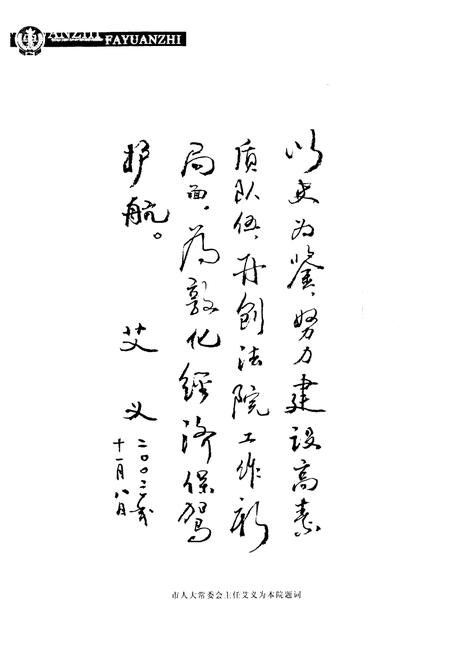 FAYUANZHI
以史为鉴，努力建设高素
质队伍，再创法院工作新
局面。为敦化经济保驾
护航。
艾义
二〇〇二年
十一月八日
市人大常委会主任艾义为本院题词